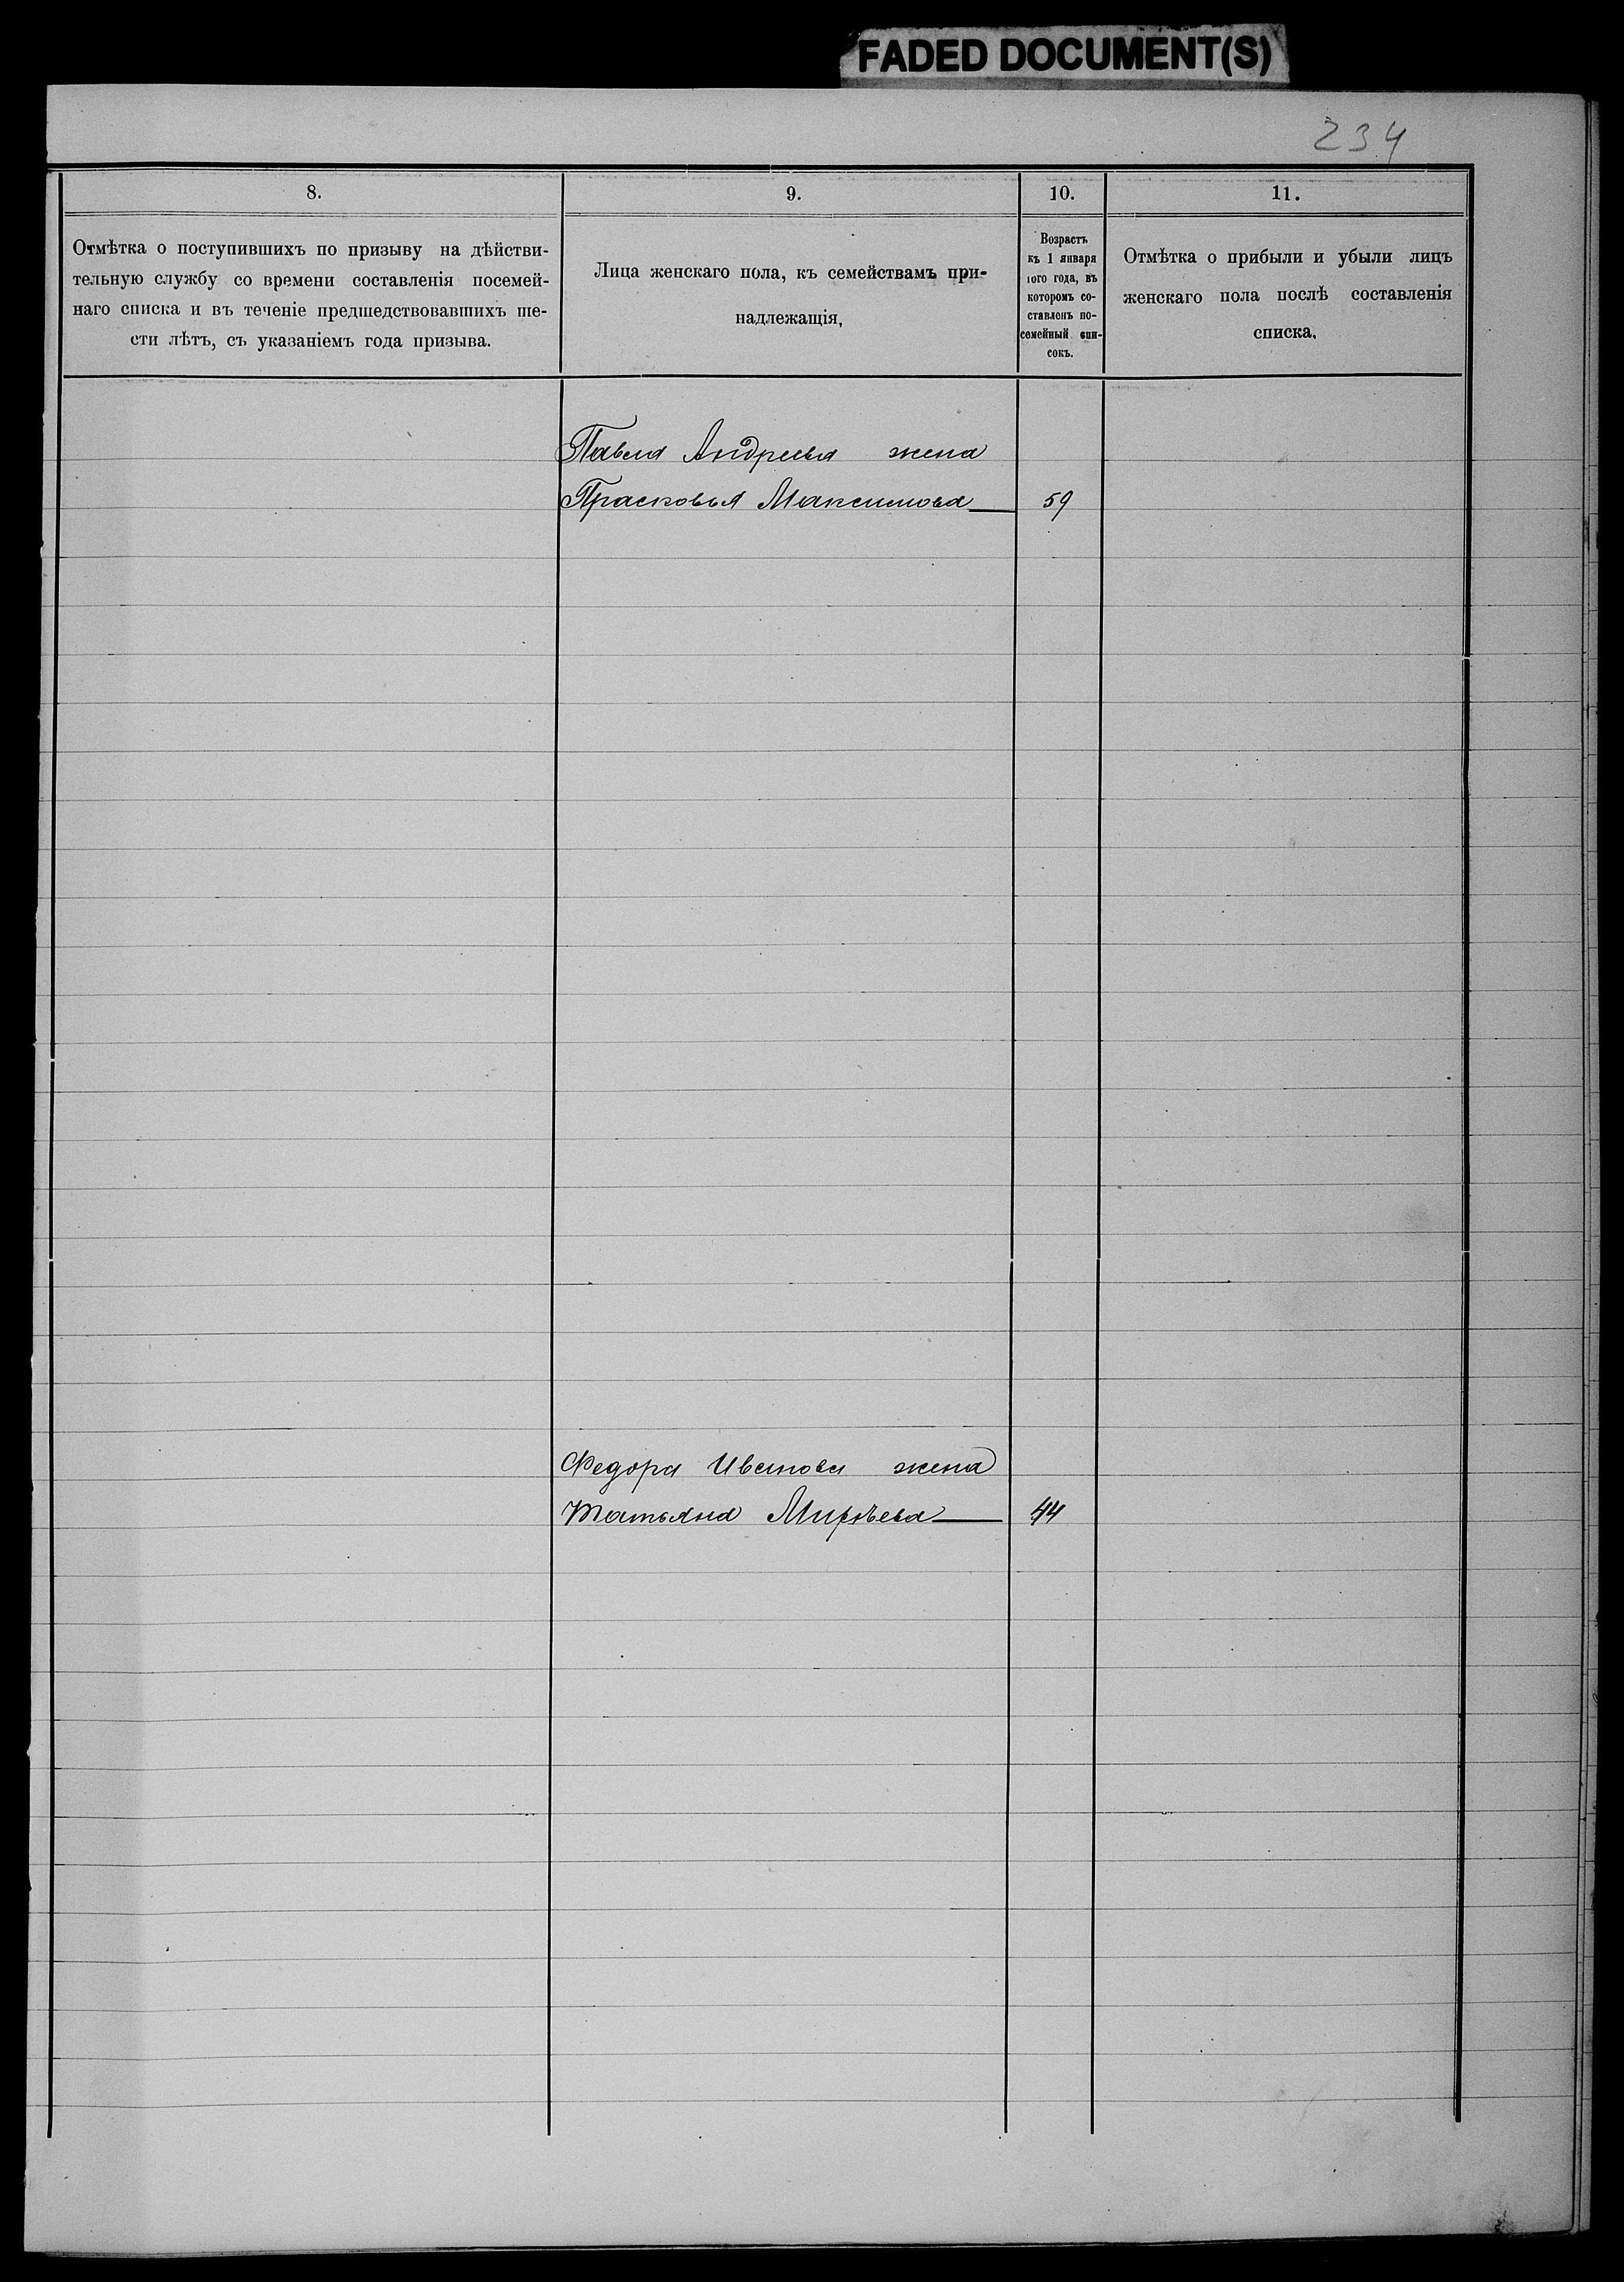 FADED DOCUMENT(S)
234
8.
Отмѣтка о поступившихъ по призыву на дѣйстви-
тельную службу со времени составленія посемей-
наго списка и въ теченіе предшедствовавшихъ ше-
сти лѣтъ, съ указаніемъ года призыва.
9.
Лица женскаго пола, къ семействамъ при-
надлежащія,
10.
Возрастъ
къ 1 января
того года, въ
которомъ со-
ставленъ по-
семейный спи-
сокъ.
11.
Отмѣтка о прибыли и убыли лицъ
женскаго пола послѣ составленія
списка.
Павла Андреева жена
Прасковья Максимова 59
Федора Иванова жена
Татьяна 44